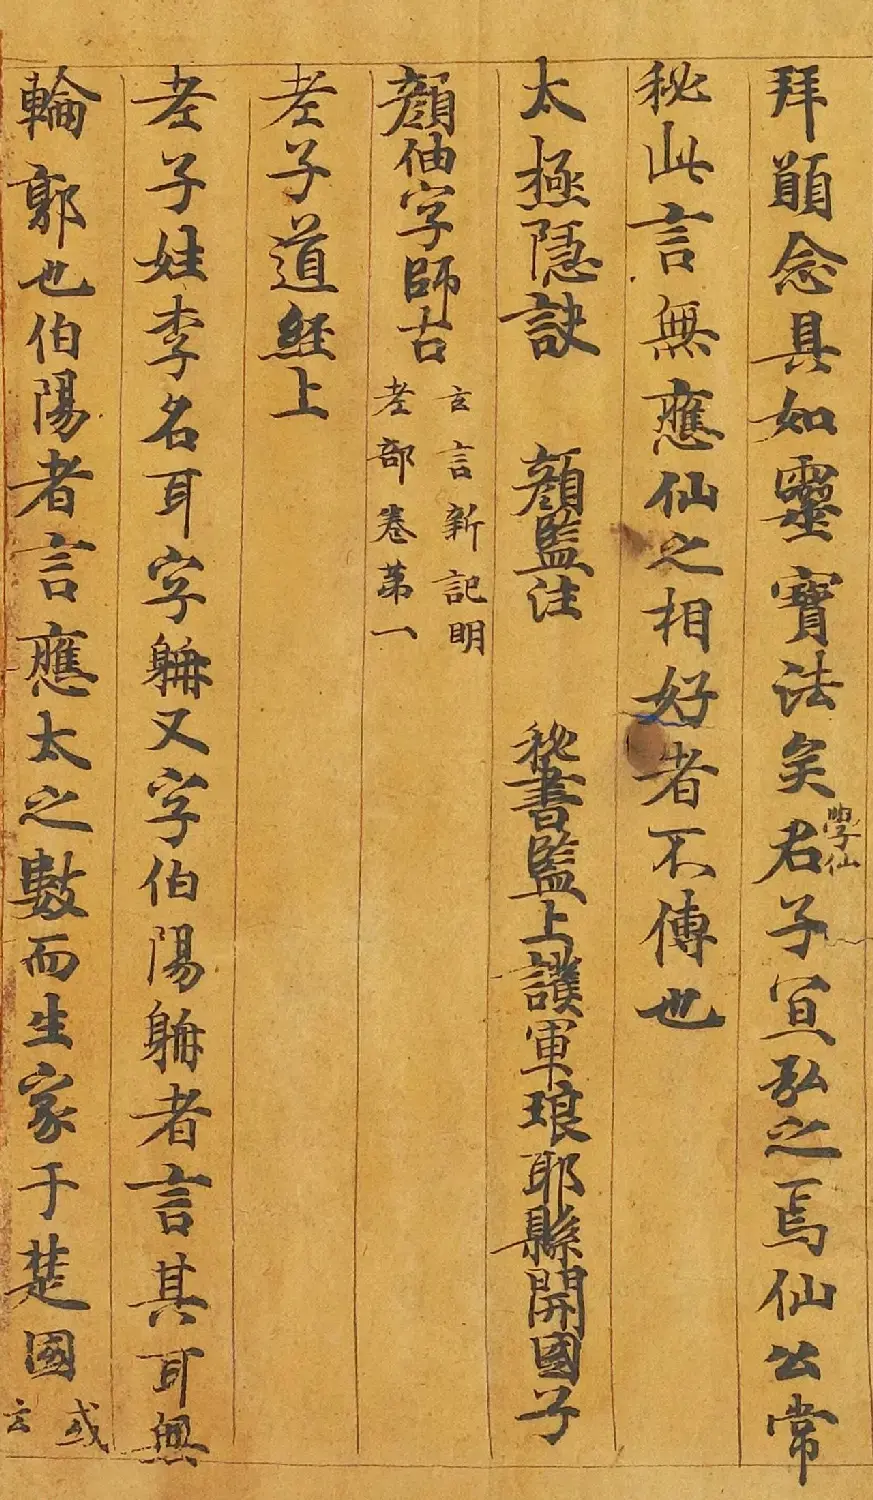 拜顚念具如靈寳法矣君子學仙宜弘之焉仙公常
秘此言無應仙之相好者不傳也
太極隱訣 顏監注 秘書監上護軍琅耶縣開國子
顏伷字師古 玄言新記明
老部卷第一
老子道經上
老子姓李名耳字耼又字伯陽耼者言其耳無
輪郭也伯陽者言應太之數而生家于楚國或
云